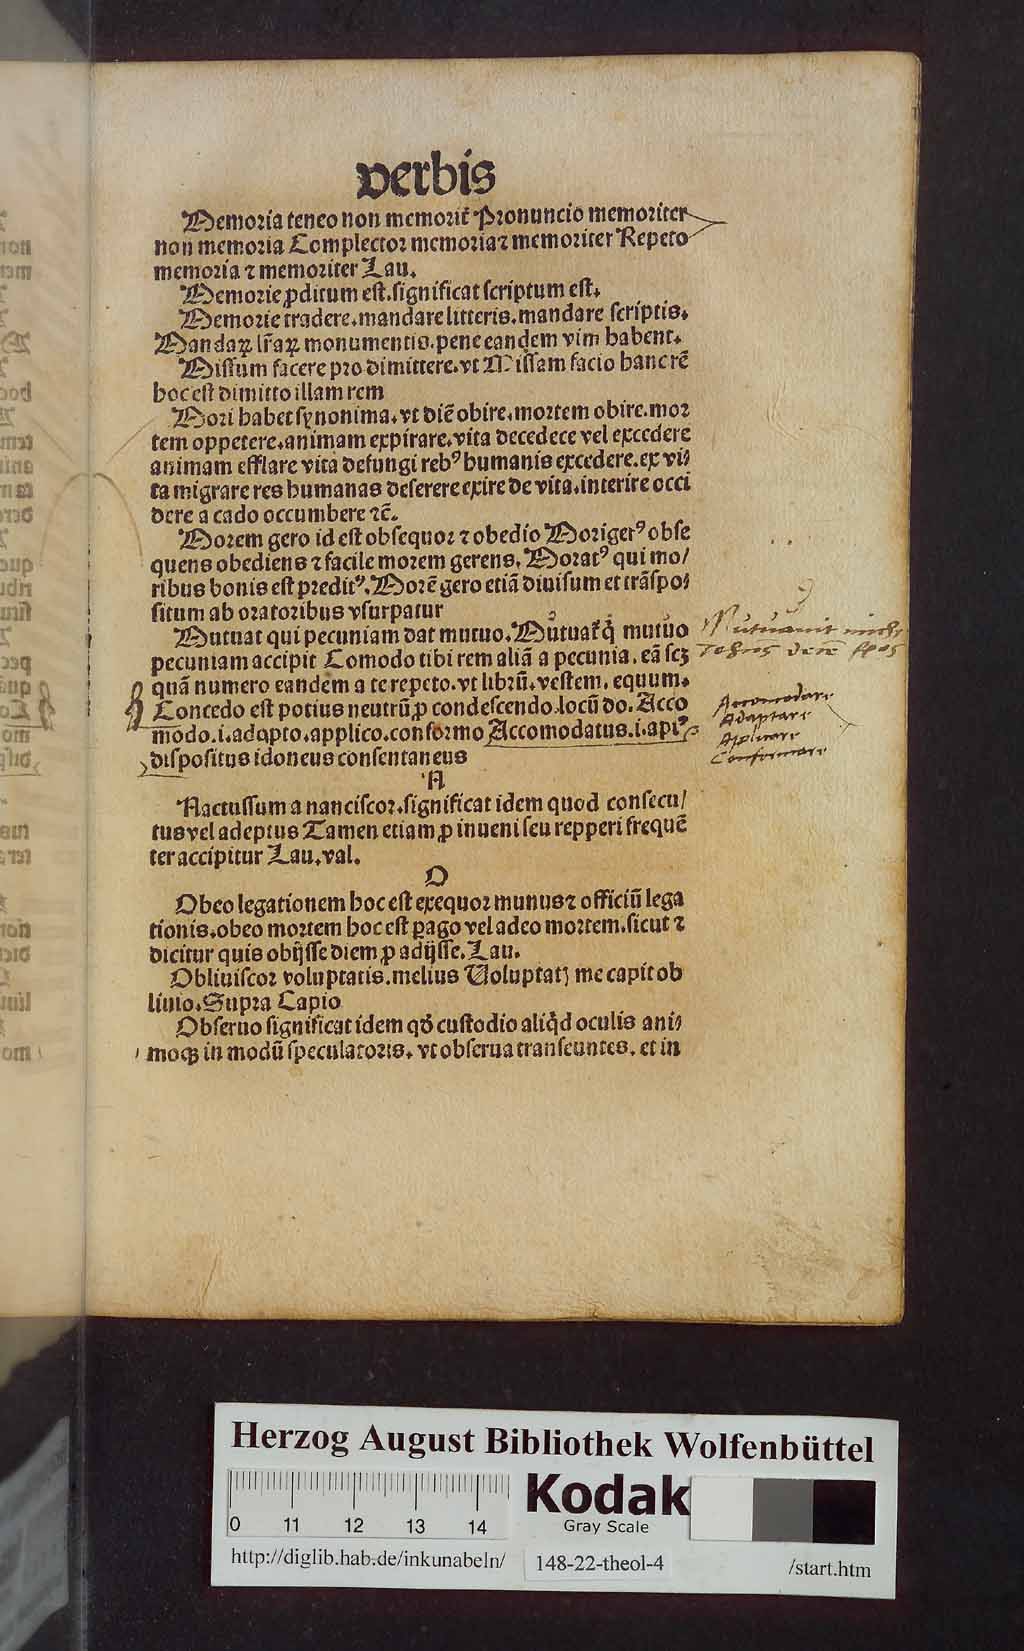 verbis
Memoria teneo non memorit̄ Pronuncio memoriter
non memoria Complector memoria ⁊ memoriter Repeto
memoria ⁊ memoriter Lau.
Memorie ꝓditum est. significat scriptum est.
Memorie tradere. mandare litteris. mandare scriptis.
Mandaꝝ lr̄aꝝ monumentis. pene eandem vim habent.
Missum facere pro dimittere. vt Missam facio hanc rē
hoc est dimitto illam rem
Mori habet synonima. vt diē obire. mortem obire. mor
tem oppetere. animam expirare. vita decedece vel excedere
animam efflare vita defungi rebꝰ humanis excedere. ex vi⸗
ta migrare res humanas deserere exire de vita. interire occi
dere a cado occumbere ⁊c̄.
Morem gero id est obsequor ⁊ obedio Morigerꝰ obse
quens obediens ⁊ facile morem gerens. Moratꝰ qui mo/
ribus bonis est preditꝰ. Morē gero etiā diuisum et trāspo⸗
situm ab oratoribus vsurpatur
Mutuat qui pecuniam dat mutuo. Mutuat᷑ q̇ mutuo
pecuniam accipit Comodo tibi rem aliā a pecunia. eā scꝫ
quā numero eandem a te repeto. vt librū. vestem. equum.
Concedo est potius neutrū ꝓ condescendo. locū do. Acco
modo. i. adapto. applico. conformo Accomodatus. i. aptꝰ
dispositus idoneus consentaneus
N
Nactus sum a nanciscor. significat idem quod consecu/
tus vel adeptus Tamen etiam ꝓ inueni seu repperi frequē
ter accipitur Lau. val.
O
Obeo legationem hoc est exequor munus ⁊ officiū lega
tionis. obeo mortem hoc est ꝑago vel adeo mortem. sicut ⁊
dicitur quis obijsse diem ꝓ adijsse. Lau.
Obliuiscor voluptatis. melius Voluptatꝭ me capit ob
liuio. Supra Capio
Obseruo significat idem qđ custodio aliq̇d oculis ani⸗
moqꝫ in modū speculatoris. vt obserua transeuntes. et in
Mutuavit michi
Accomodare
Adaptare
Aplicare
Conformare
Herzog August Bibliothek Wolfenbüttel
0 11 12 13 14
Kodak
Gray Scale
http://diglib.hab.de/inkunabeln/
148-22-theol-4
/start.htm